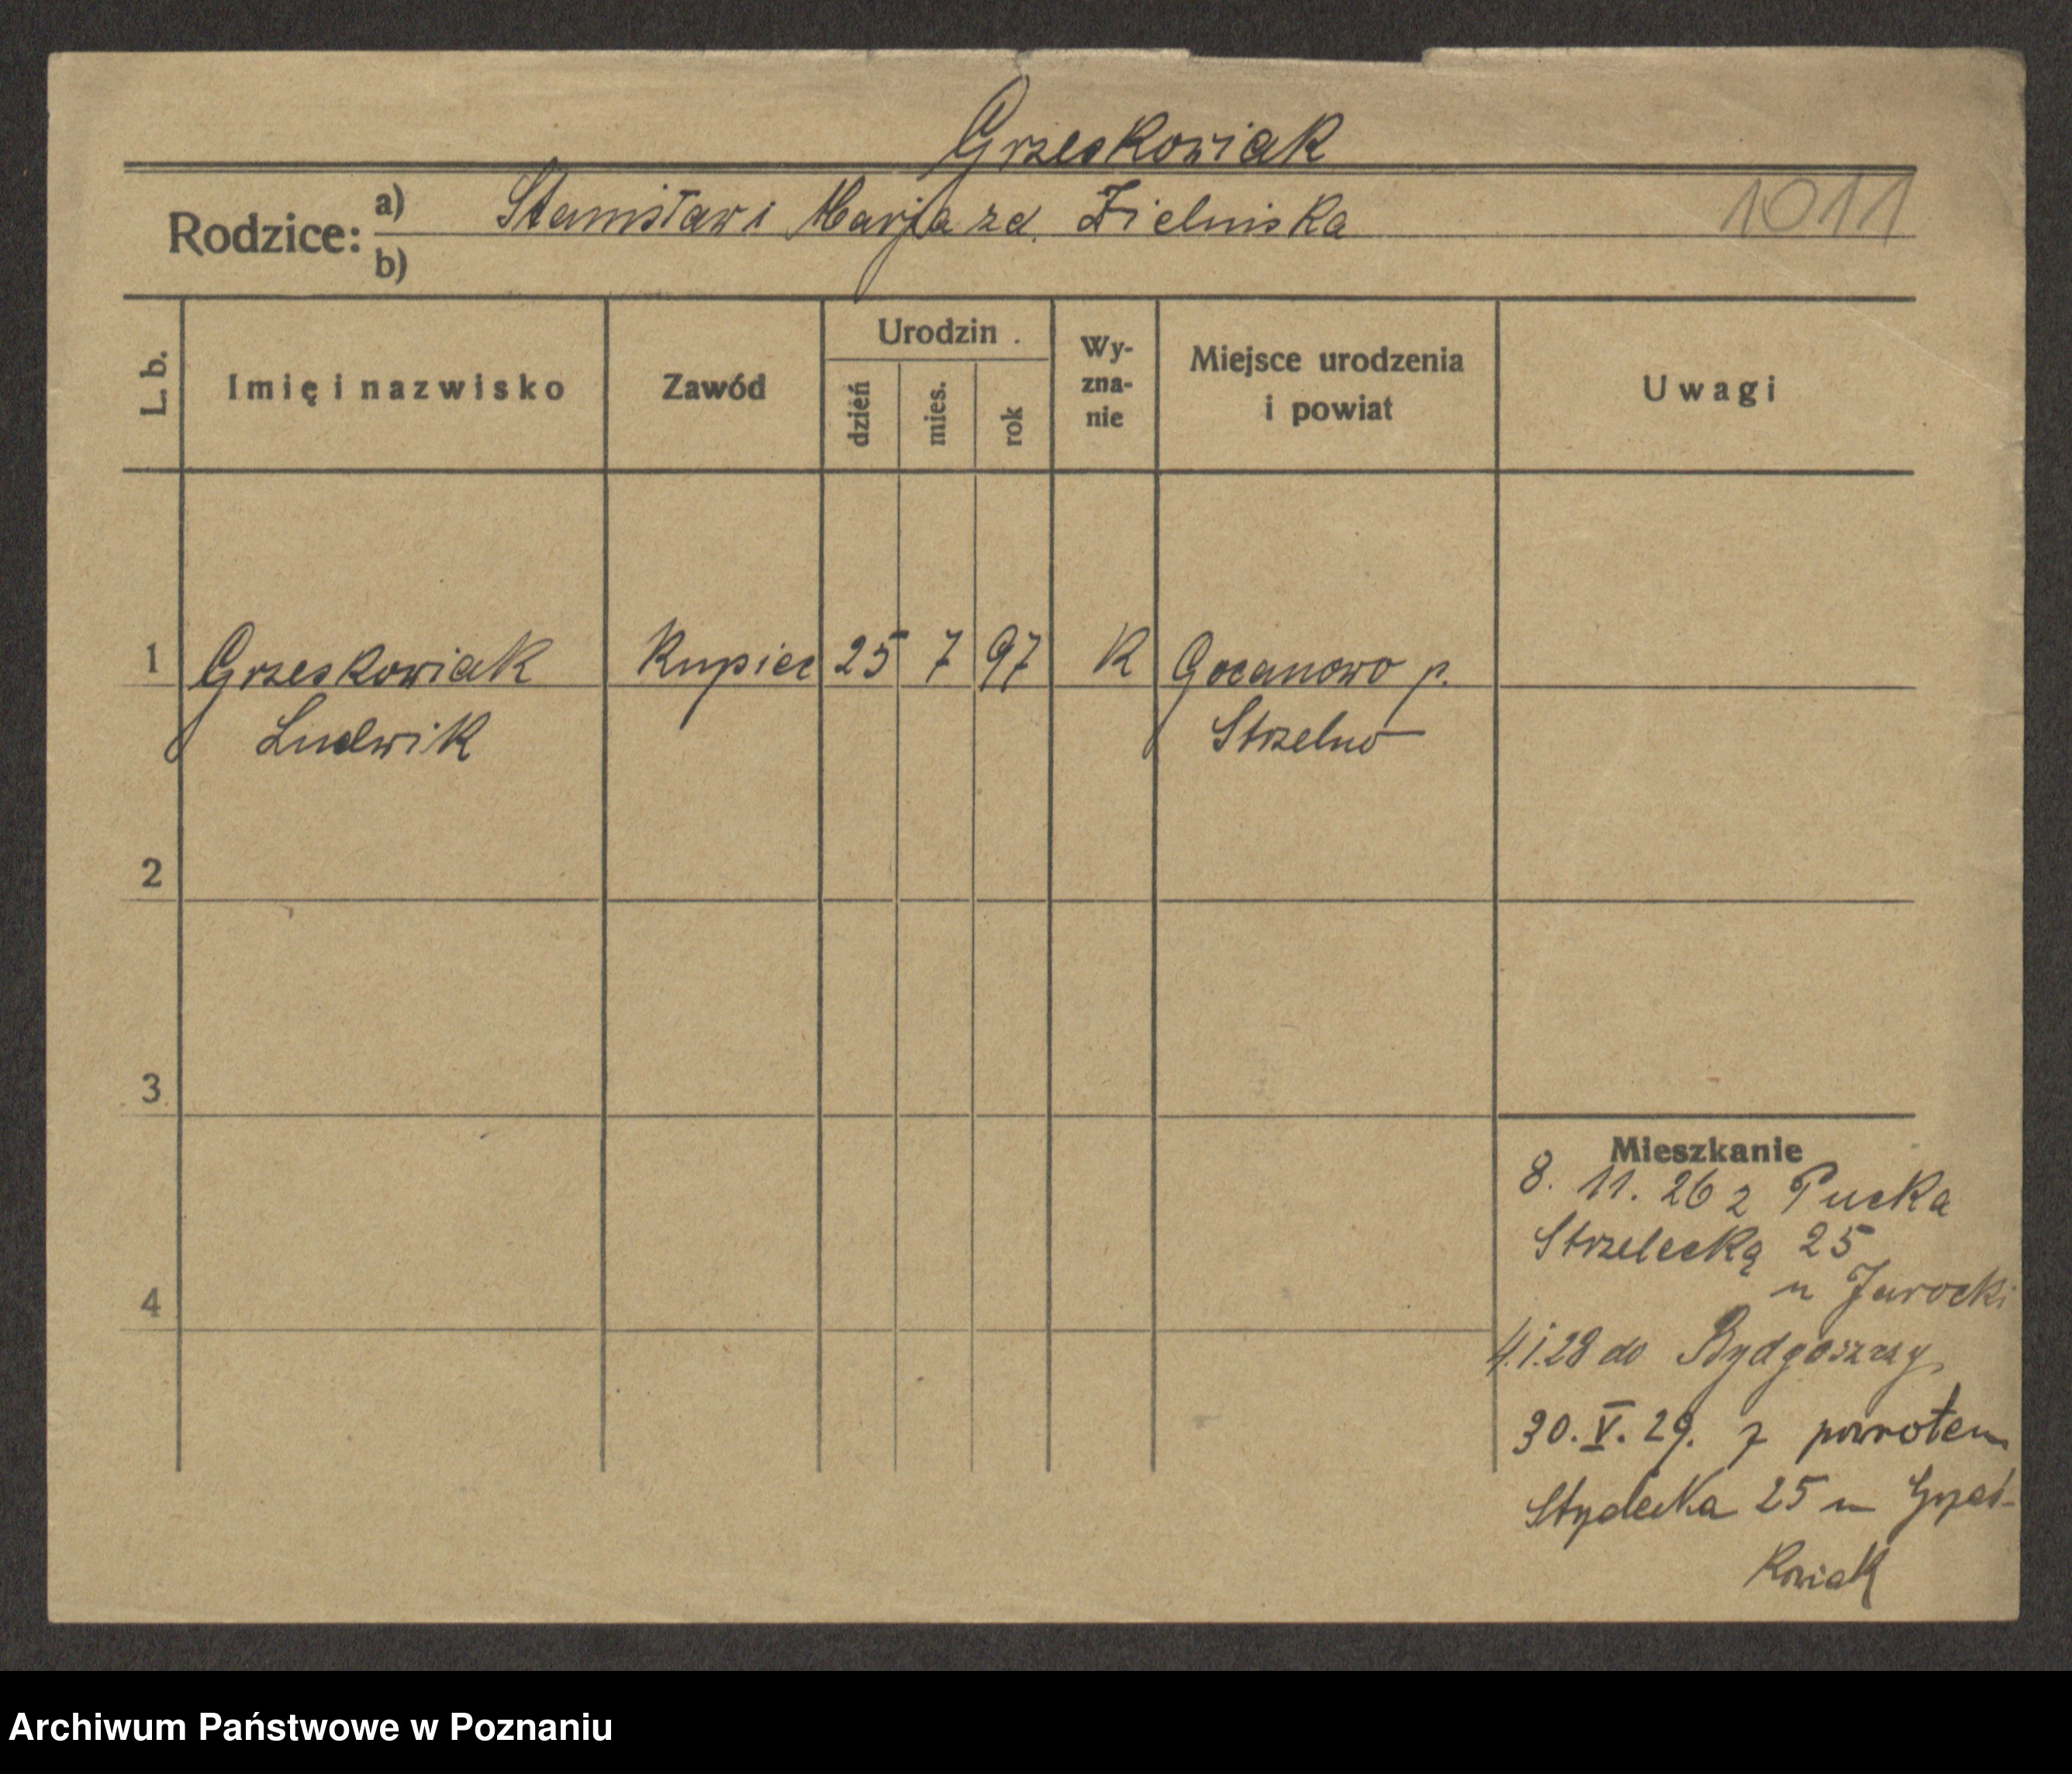 Grzeskowiak
Rodzice: a) Stanisław i Marja zd. Zielinska 1011
b)
L. b. Imię i nazwisko Zawód Urodzin . dzień mies. rok Wy-zna-nie Miejsce urodzenia i powiat Uwagi
1 Grzeskowiak Kupiec 25 7 97 K Gocanowo p.
Ludwik Strzelno
2
3
Mieszkanie
8. 11. 26 z Pucka
Strzelecką 25
u Jarocki
4
4.1.28 do Bydgoszczy
30. V. 29. z powrotem
25 u Grześ-
kowiak
Archiwum Państwowe w Poznaniu